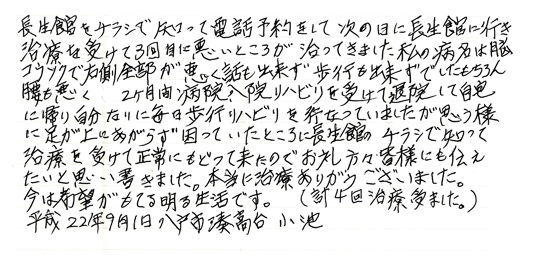 長生館をチラシで知って電話予約をして次の日に長生館に行き
治療を受けて3回目に悪いところが治ってきました私の病名は脳
コウソクで右側全部が悪く話も出来ず歩行も出来ずでしたもちろん
腰も悪く 2ヶ月間病院へ入院リハビリを受けて退院して自宅
に帰り自分なりに毎日歩行リハビリを行なっていましたが思う様
に足が上にあがらず困っていたところに長生館のチラシで知って
治療を受けて正常にもどって来たのでお若し方々皆様にも伝え
たいと思い書きました。本当に治療ありがとうございました。
今は希望がもてる明る生活です。 (計4回治療きました。)
平成22年9月1日八戸市湊高台 小池